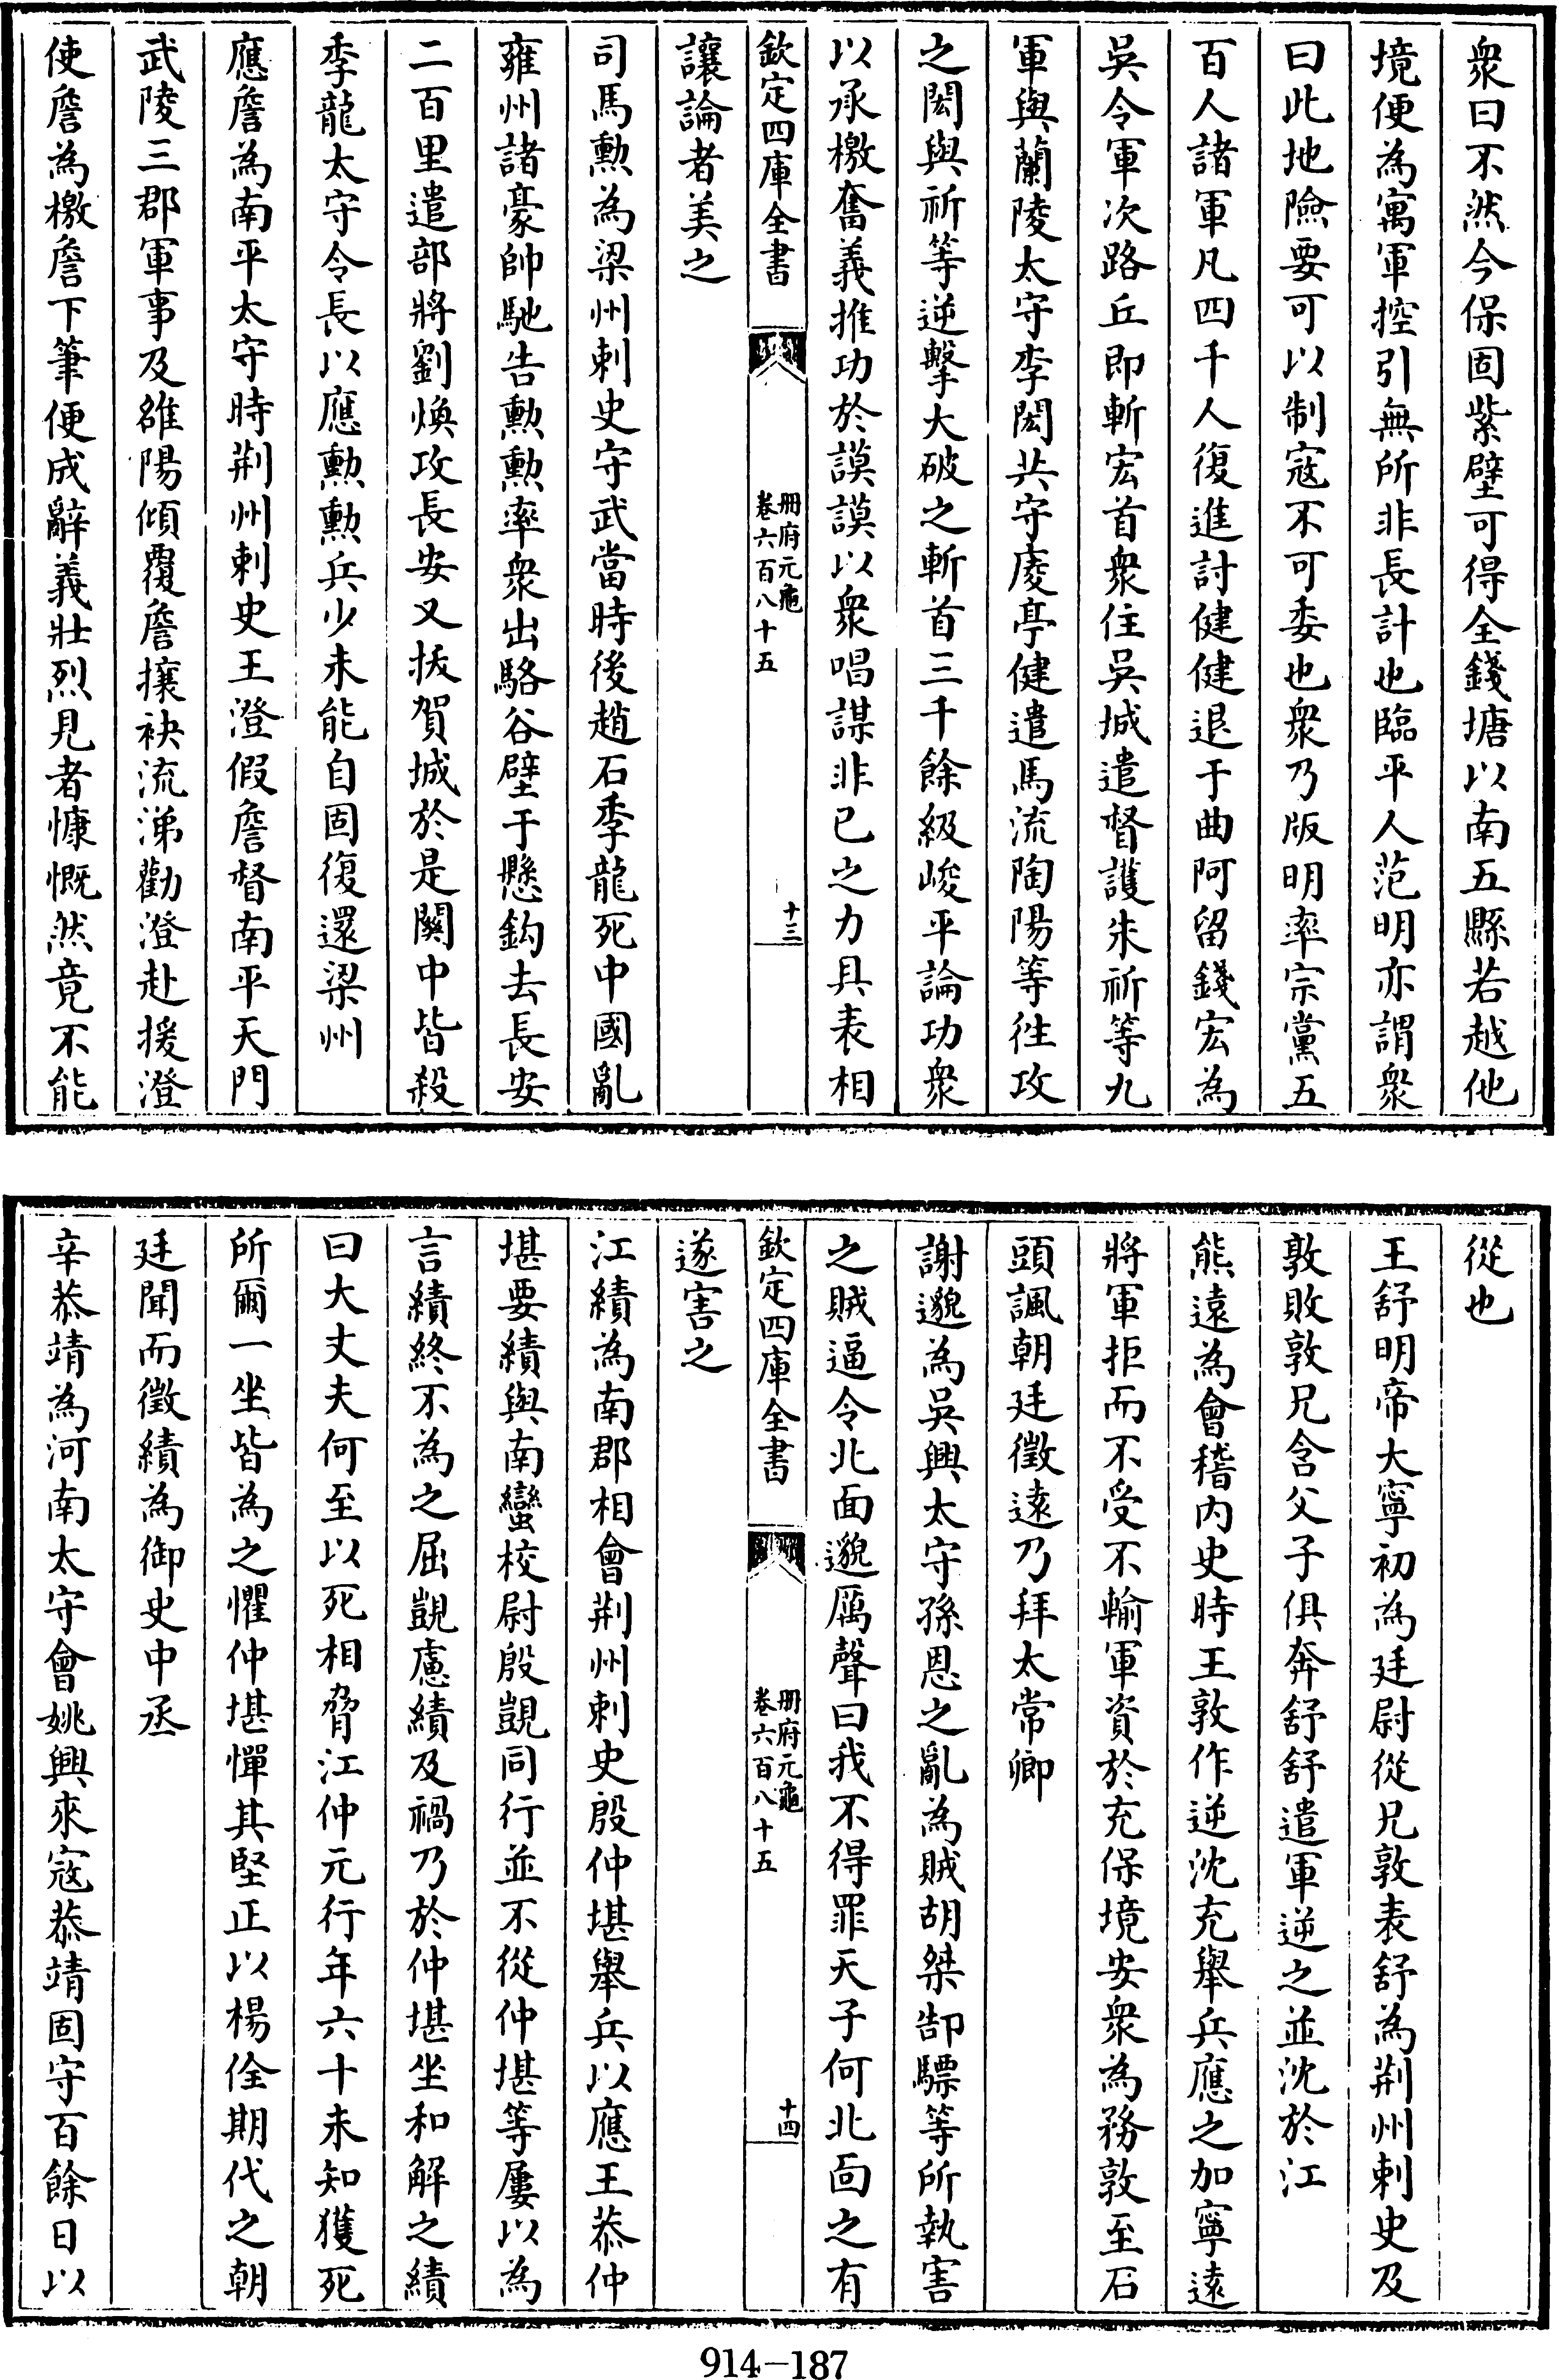 衆曰不然今保固紫壁可得全錢塘以南五縣若越他
境便為寓軍控引無所非長計也臨平人范明亦謂衆
曰此地險要可以制寇不可委也衆乃版明率宗黨五
百人諸軍凡四千人復進討健健退于曲阿留錢宏為
吳令軍次路丘即斬宏首衆住吳城遣督護朱祈等九
軍與蘭陵太守李閎共守庱亭健遣馬流陶陽等徃攻
之閎與祈等逆擊大破之斬首三千餘級峻平論功衆
以承檄奮義推功於謨謨以衆唱謀非已之力具表相
欽定四庫全書
冊府元龜
卷六百八十五
十三
讓論者美之
司馬勲為梁州刺史守武當時後趙石季龍死中國亂
雍州諸豪帥馳告勲勲率衆出駱谷壁于懸鈎去長安
二百里遣部將劉煥攻長安又拔賀城於是關中皆殺
季龍太守令長以應勲勲兵少未能自固復還梁州
應詹為南平太守時荆州刺史王澄假詹督南平天門
武陵三郡軍事及雒陽傾覆詹攘袂流涕勸澄赴援澄
使詹為檄詹下筆便成辭義壯烈見者慷慨然竟不能
從也
王舒明帝大寧初為廷尉從兄敦表舒為荆州刺史及
敦敗敦兄含父子俱奔舒舒遣軍逆之並沈於江
熊遠為會稽内史時王敦作逆沈充舉兵應之加寧遠
將軍拒而不受不輸軍資於充保境安衆為務敦至石
頭諷朝廷徵遠乃拜太常卿
謝邈為吳興太守孫恩之亂為賊胡桀郜驃等所執害
之賊逼令北面邈厲聲曰我不得罪天子何北面之有
欽定四庫全書
冊府元龜
卷六百八十五
十四
遂害之
江績為南郡相會荆州刺史殷仲堪舉兵以應王恭仲
堪要績與南蠻校尉殷覬同行並不從仲堪等屢以為
言績終不為之屈覬慮績及禍乃於仲堪坐和解之績
曰大丈夫何至以死相脅江仲元行年六十未知獲死
所爾一坐皆為之懼仲堪憚其堅正以楊佺期代之朝
廷聞而徵績為御史中丞
辛恭靖為河南太守會姚興來寇恭靖固守百餘日以
914-187